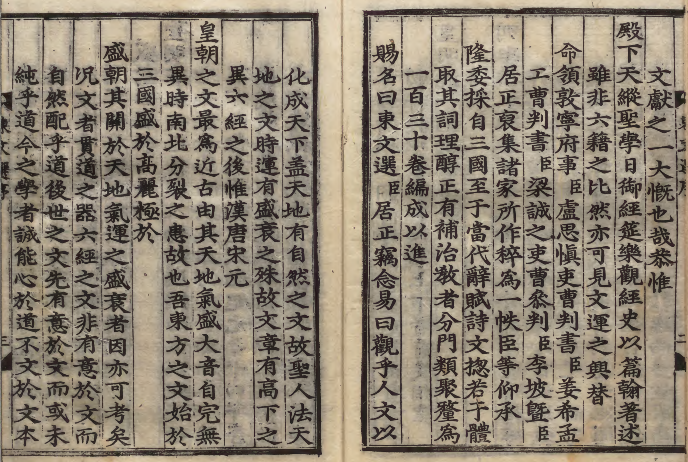 文獻之一大慨也哉恭惟
殿下天縱聖學日御經筵樂觀經史以篇翰著述
雖非六籍之比然亦可見文運之興替
命領敦寧府事臣盧思愼吏曹判書臣姜希孟
工曹判書臣梁誠之吏曹叅判臣李坡曁臣
居正裒集諸家所作稡爲一帙臣等仰承
隆委採自三國至于當代辭賦詩文揔若干體
取其詞理醇正有補治敎者分門類聚釐爲
一百三十卷編成以進
賜名曰東文選臣居正竊念易曰觀乎人文以
化成天下盖天地有自然之文故聖人法天
地之文時運有盛衰之殊故文章有高下之
異六經之後惟漢唐宋元
皇朝之文最爲近古由其天地氣盛大音自完無
異時南北分裂之患故也吾東方之文始於
三國盛於高麗極於
盛朝其關於天地氣運之盛衰者因亦可考矣
况文者貫道之器六經之文非有意於文而
自然配乎道後世之文先有意於文而或未
純乎道今之學者誠能心於道不文於文本